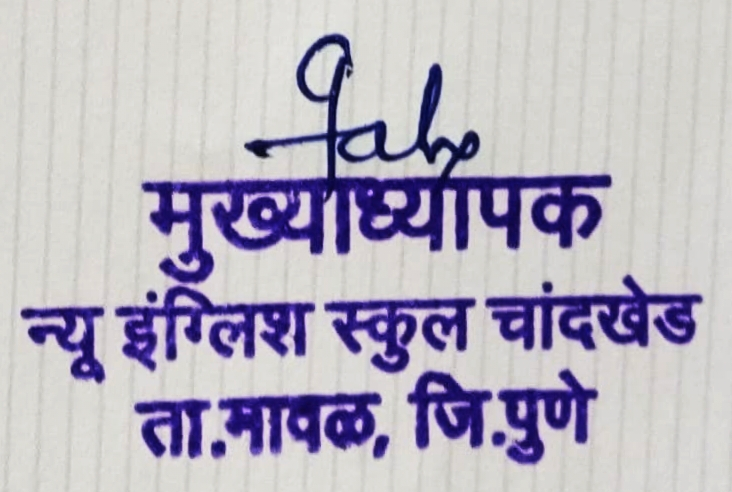 मुख्याध्यापक
न्यू इंग्लिश स्कुल चांदखेड
ता.मावळ, जि.पुणे